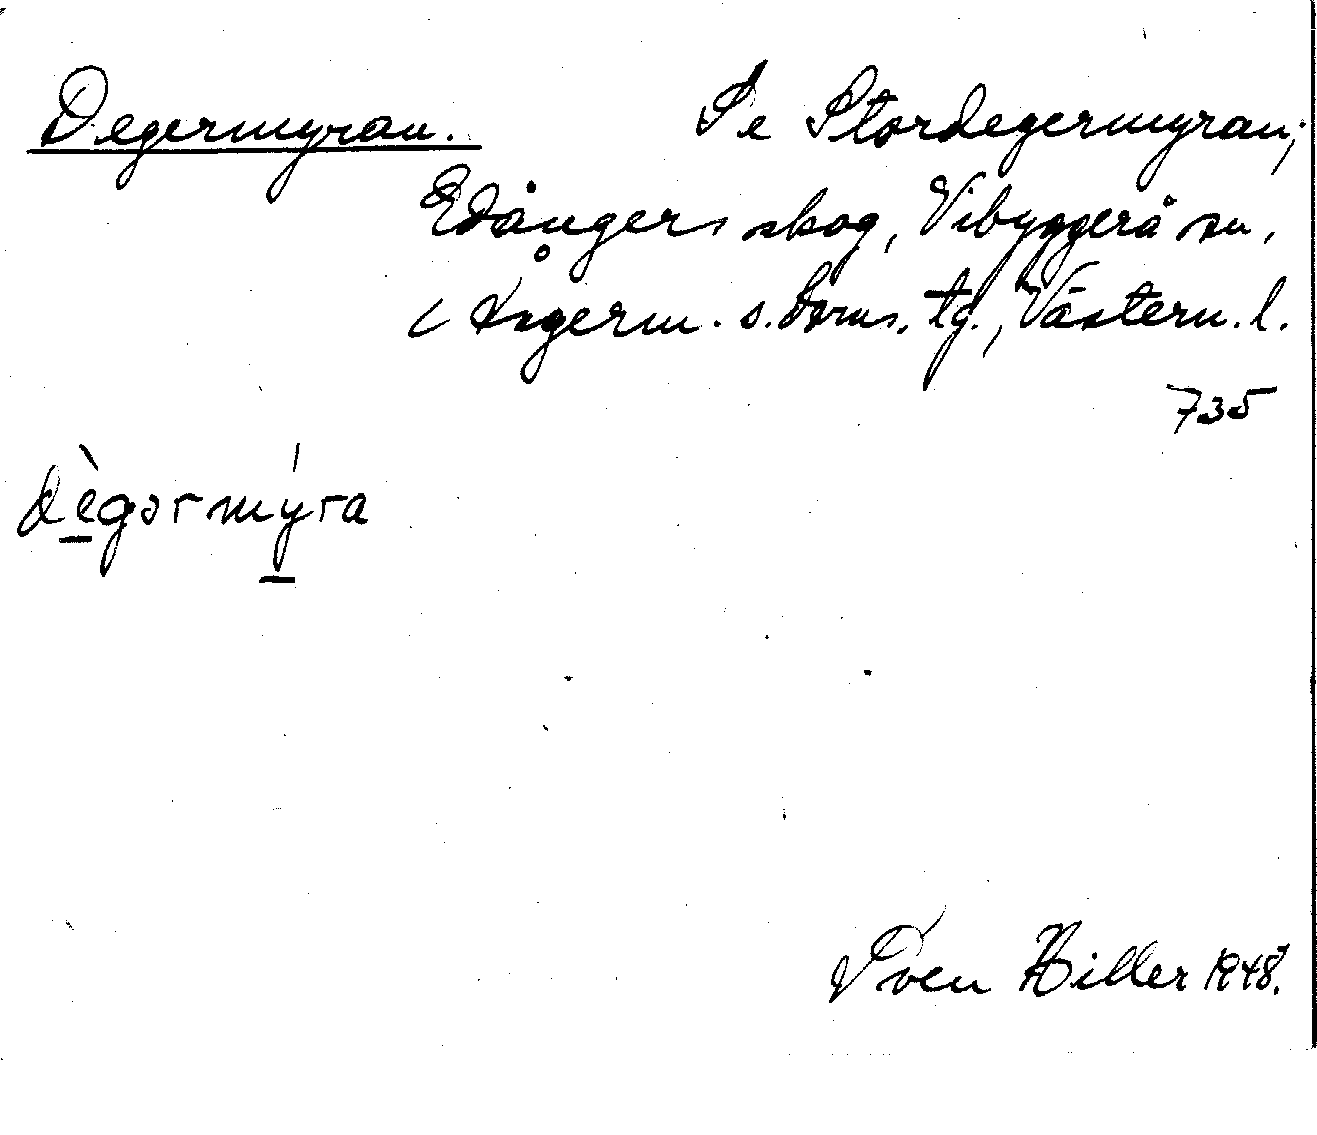 Degermyran. Se Stordegermyran;
Edångers skog, Vibyggerå sn,
i Ångerm. s. doms. tg., Västern. l.
735
dègərmýra
Sven Hiller 1948.